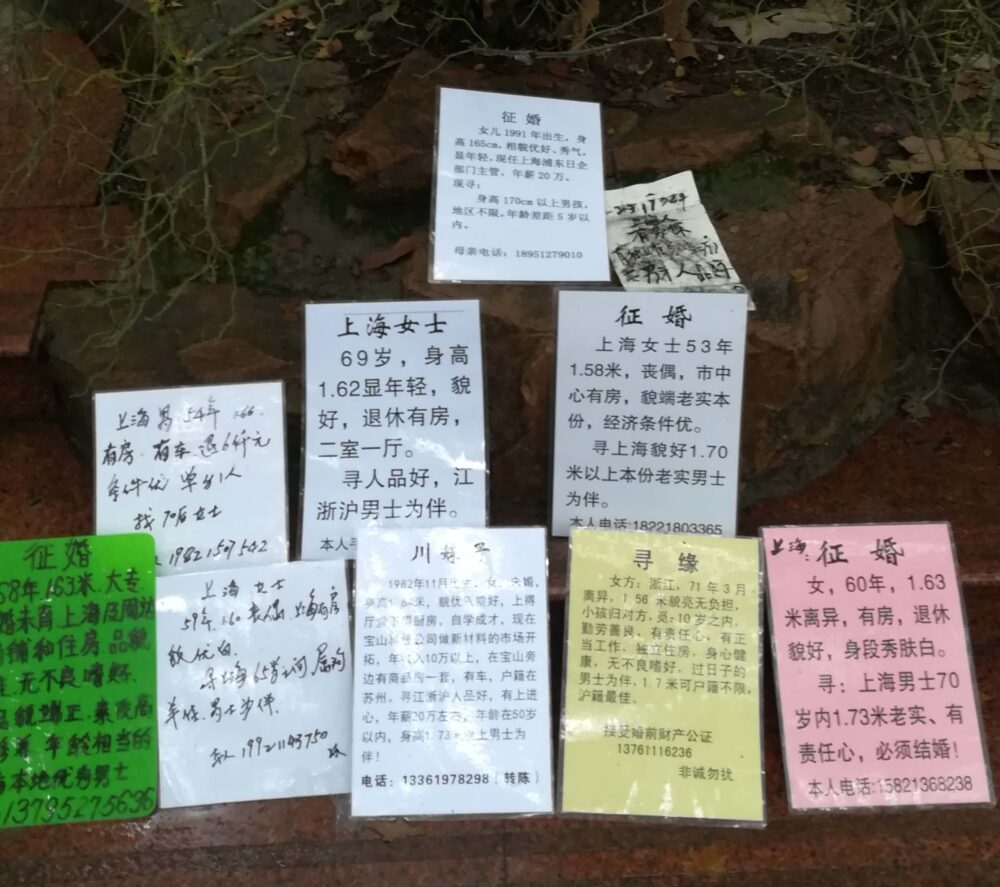 征婚
女儿 1991 年出生，身
高 165cm，相貌优好、秀气，
显年轻，现任上海浦东日企
部门主管，年薪 20 万。
现寻：
身高 170cm 以上男孩，
地区不限，年龄差距 5 岁以
内。
母亲电话：18951279010
人品好
上海女士
69岁，身高
1.62显年轻，貌
好，退休有房，
二室一厅。
寻人品好，江
浙沪男士为伴。
本人
征婚
上海女士53年
1.58米，丧偶，市中
心有房，貌端老实本
份，经济条件优。
寻上海貌好1.70
米以上本份老实男士
为伴。
本人电话:18221803365
上海男 54年 1.66.
有房.有车.退6仟元
条件优 单身1人
找 70后女士
19821507542
征婚
58年1.63米.大专
婚未育上海及周边
铺和住房.品貌
无不良嗜好.
品貌端正.素质高
年龄相当的
本地优秀男士
13735275636
上海 女士
59年.1.60 丧偶.上海有房
貌优白.
寻上海 65岁
男士为伴.
19921143750
川妹子
1982年11月出生，女，未婚，
身高1.64米，貌优人品好，上得
厅堂下得厨房，自学成才，现在
宝山科技公司做新材料的市场开
拓，年收入10万以上，在宝山旁
边有商品房一套，有车，户籍在
苏州。寻江浙沪人品好，有上进
心，年薪20万左右，年龄在50岁
以内，身高1.73米以上男士为
伴！
电话：13361978298（转陈）
寻缘
女方：浙江，71 年 3 月
离异，1.56 米貌亮无负担，
小孩归对方，觅:10 岁之内，
勤劳善良，有责任心，有正
当工作，独立住房，身心健
康，无不良嗜好，过日子的
男士为伴，1.7 米可户籍不限，
沪籍最佳。
接受婚前财产公证
13761116236
非诚勿扰
上海 征婚
女，60年，1.63
米离异，有房，退休
貌好，身段秀肤白。
寻：上海男士70
岁内1.73米老实、有
责任心，必须结婚！
本人电话:15821368238